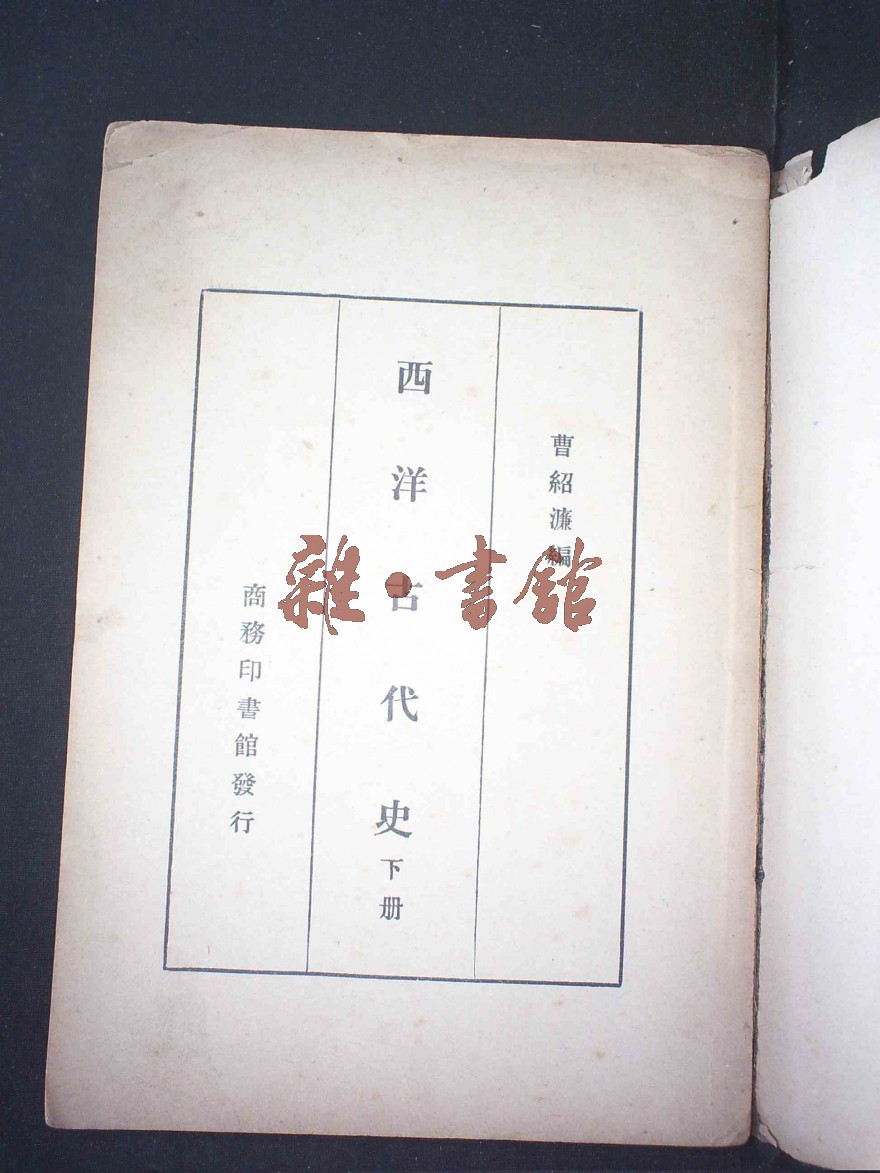 曹紹濂編
西洋古代史下册
商務印書館發行
雜·書館